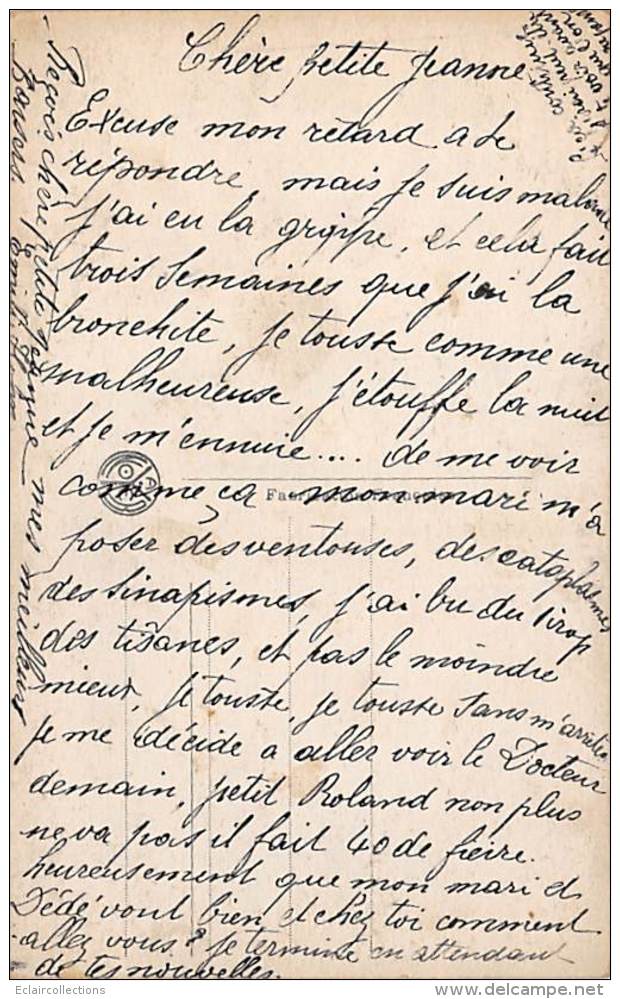 Chère petite Jeanne
Excuse mon retard a te
répondre, mais je suis malade
j'ai eu la grippe, et cela fait
trois semaines que j'ai la
bronchite, je tousse comme une
malheureuse, j'étouffe la nuit
et je m'ennuie.... de me voir
comme ça mon mari m'a
poser des ventouses, des cataplasmes
des sinapismes, j'ai bu du sirop
des tisanes, et pas le moindre
mieux, je tousse, je tousse sans m'arrêter
je me décide a aller voir le Docteur
demain, petit Roland non plus
ne va pas il fait 40 de fièvre.
heureusement que mon mari et
Dédé vont bien et chez toi comment
allez vous? je termine en attendant
de tes nouvelles.
Reçois chère petite Jeanne mes meilleurs
Baisers
Eclaircollections
www.delcampe.net